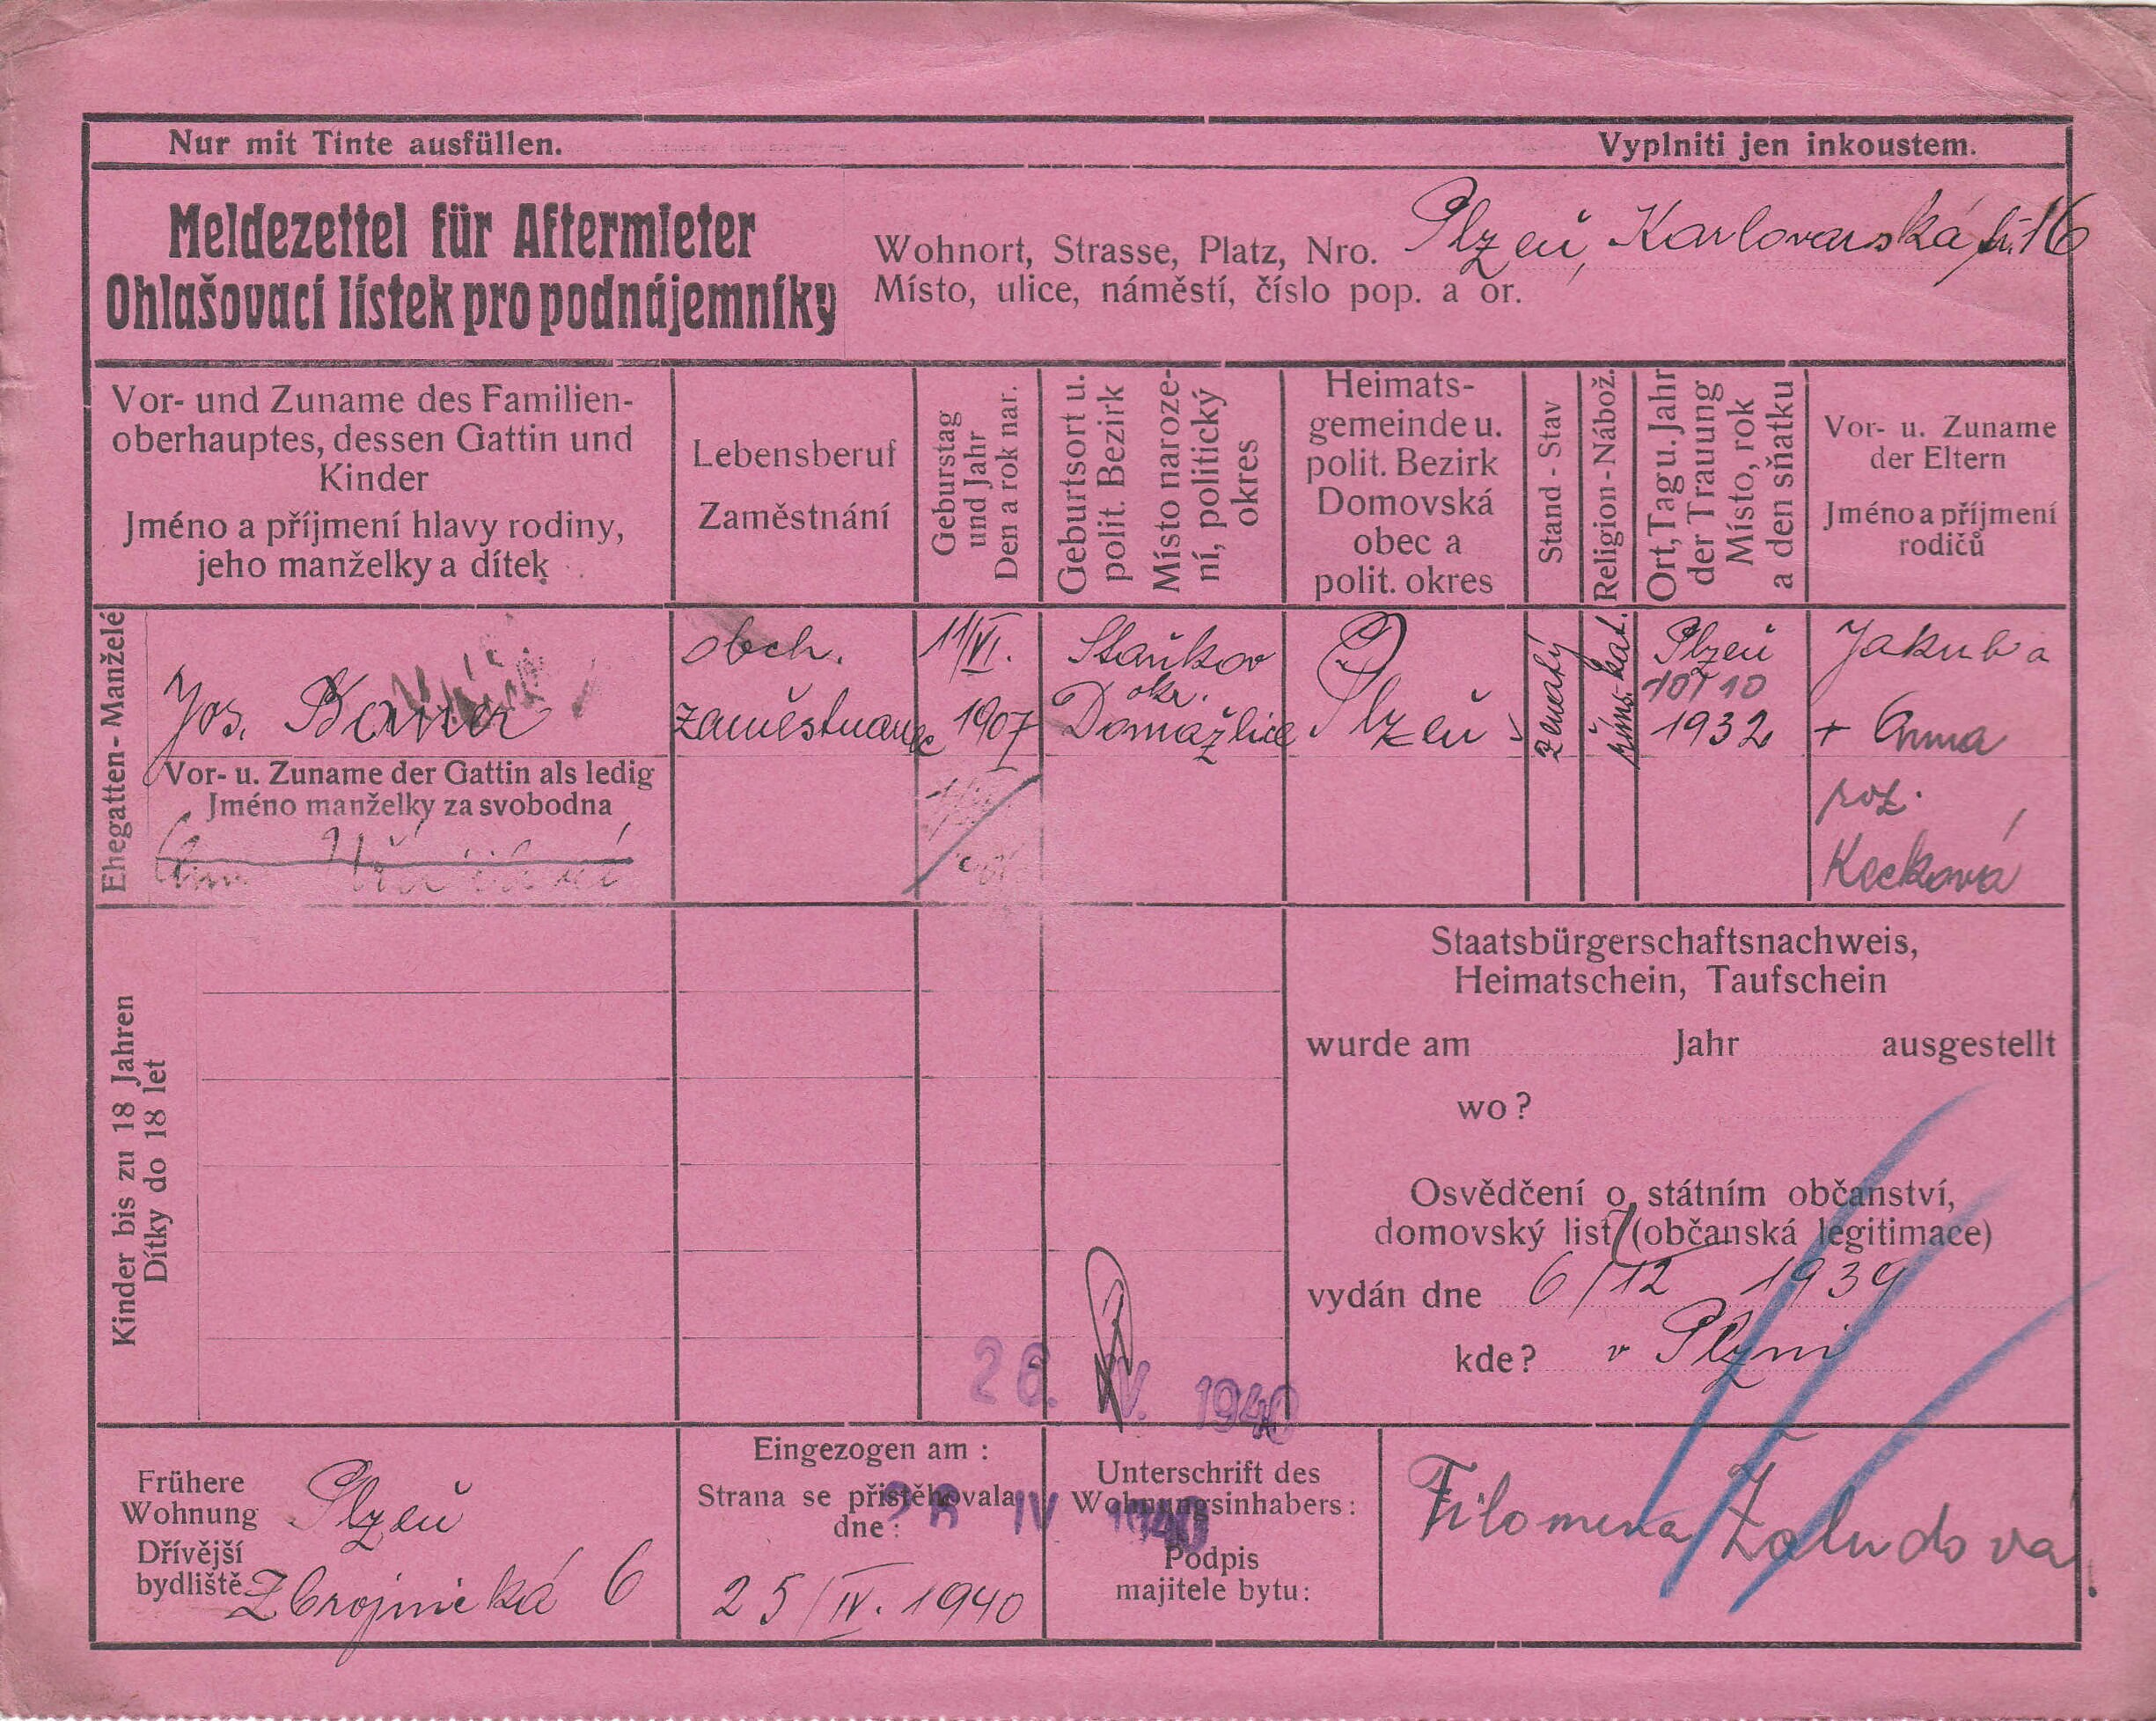 Nur mit Tinte ausfüllen.
Vyplniti jen inkoustem.
Meldezettel für Aftermieter
Ohlašovací lístek pro podnájemníky
Wohnort, Strasse, Platz, Nro. Plzeň, Karlovarská 16
Místo, ulice, náměstí, číslo pop. a or.
Vor- und Zuname des Familien-
oberhauptes, dessen Gattin und
Kinder
Jméno a příjmení hlavy rodiny,
jeho manželky a dítek
Lebensberuf
Zaměstnání
Geburstag
und Jahr
Den a rok nar.
Geburtsort u.
polit. Bezirk
Místo naroze-
ní, politický
okres
Heimats-
gemeinde u.
polit. Bezirk
Domovská
obec a
polit. okres
Stand - Stav
Religion - Nábož.
Ort, Tag u. Jahr
der Trauung
Místo, rok
a den sňatku
Vor- u. Zuname
der Eltern
Jméno a příjmení
rodičů
Ehegatten - Manželé
Jos.
obch.
zaměstnanec
11/VI.
1907
Staňkov
okr.
Domažlice
Plzeň
ženatý
řím. kat.
Plzeň
10/10
1932
Jakub a
+ Anna
roz.
Kecková
Vor- u. Zuname der Gattin als ledig
Jméno manželky za svobodna
Kinder bis zu 18 Jahren
Dítky do 18 let
Staatsbürgerschaftsnachweis,
Heimatschein, Taufschein
wurde am Jahr ausgestellt
wo?
Osvědčení o státním občanství,
domovský list (občanská legitimace)
vydán dne 6/12 1939
kde? v Plzni
26. IV. 1940
Frühere
Wohnung
Dřívější
bydliště
Plzeň
Zbrojnická 6
Eingezogen am :
Strana se přistěhovala
dne :
IV 1940
25/IV. 1940
Unterschrift des
Wohnungsinhabers :
Podpis
majitele bytu:
Filomena Žaludova